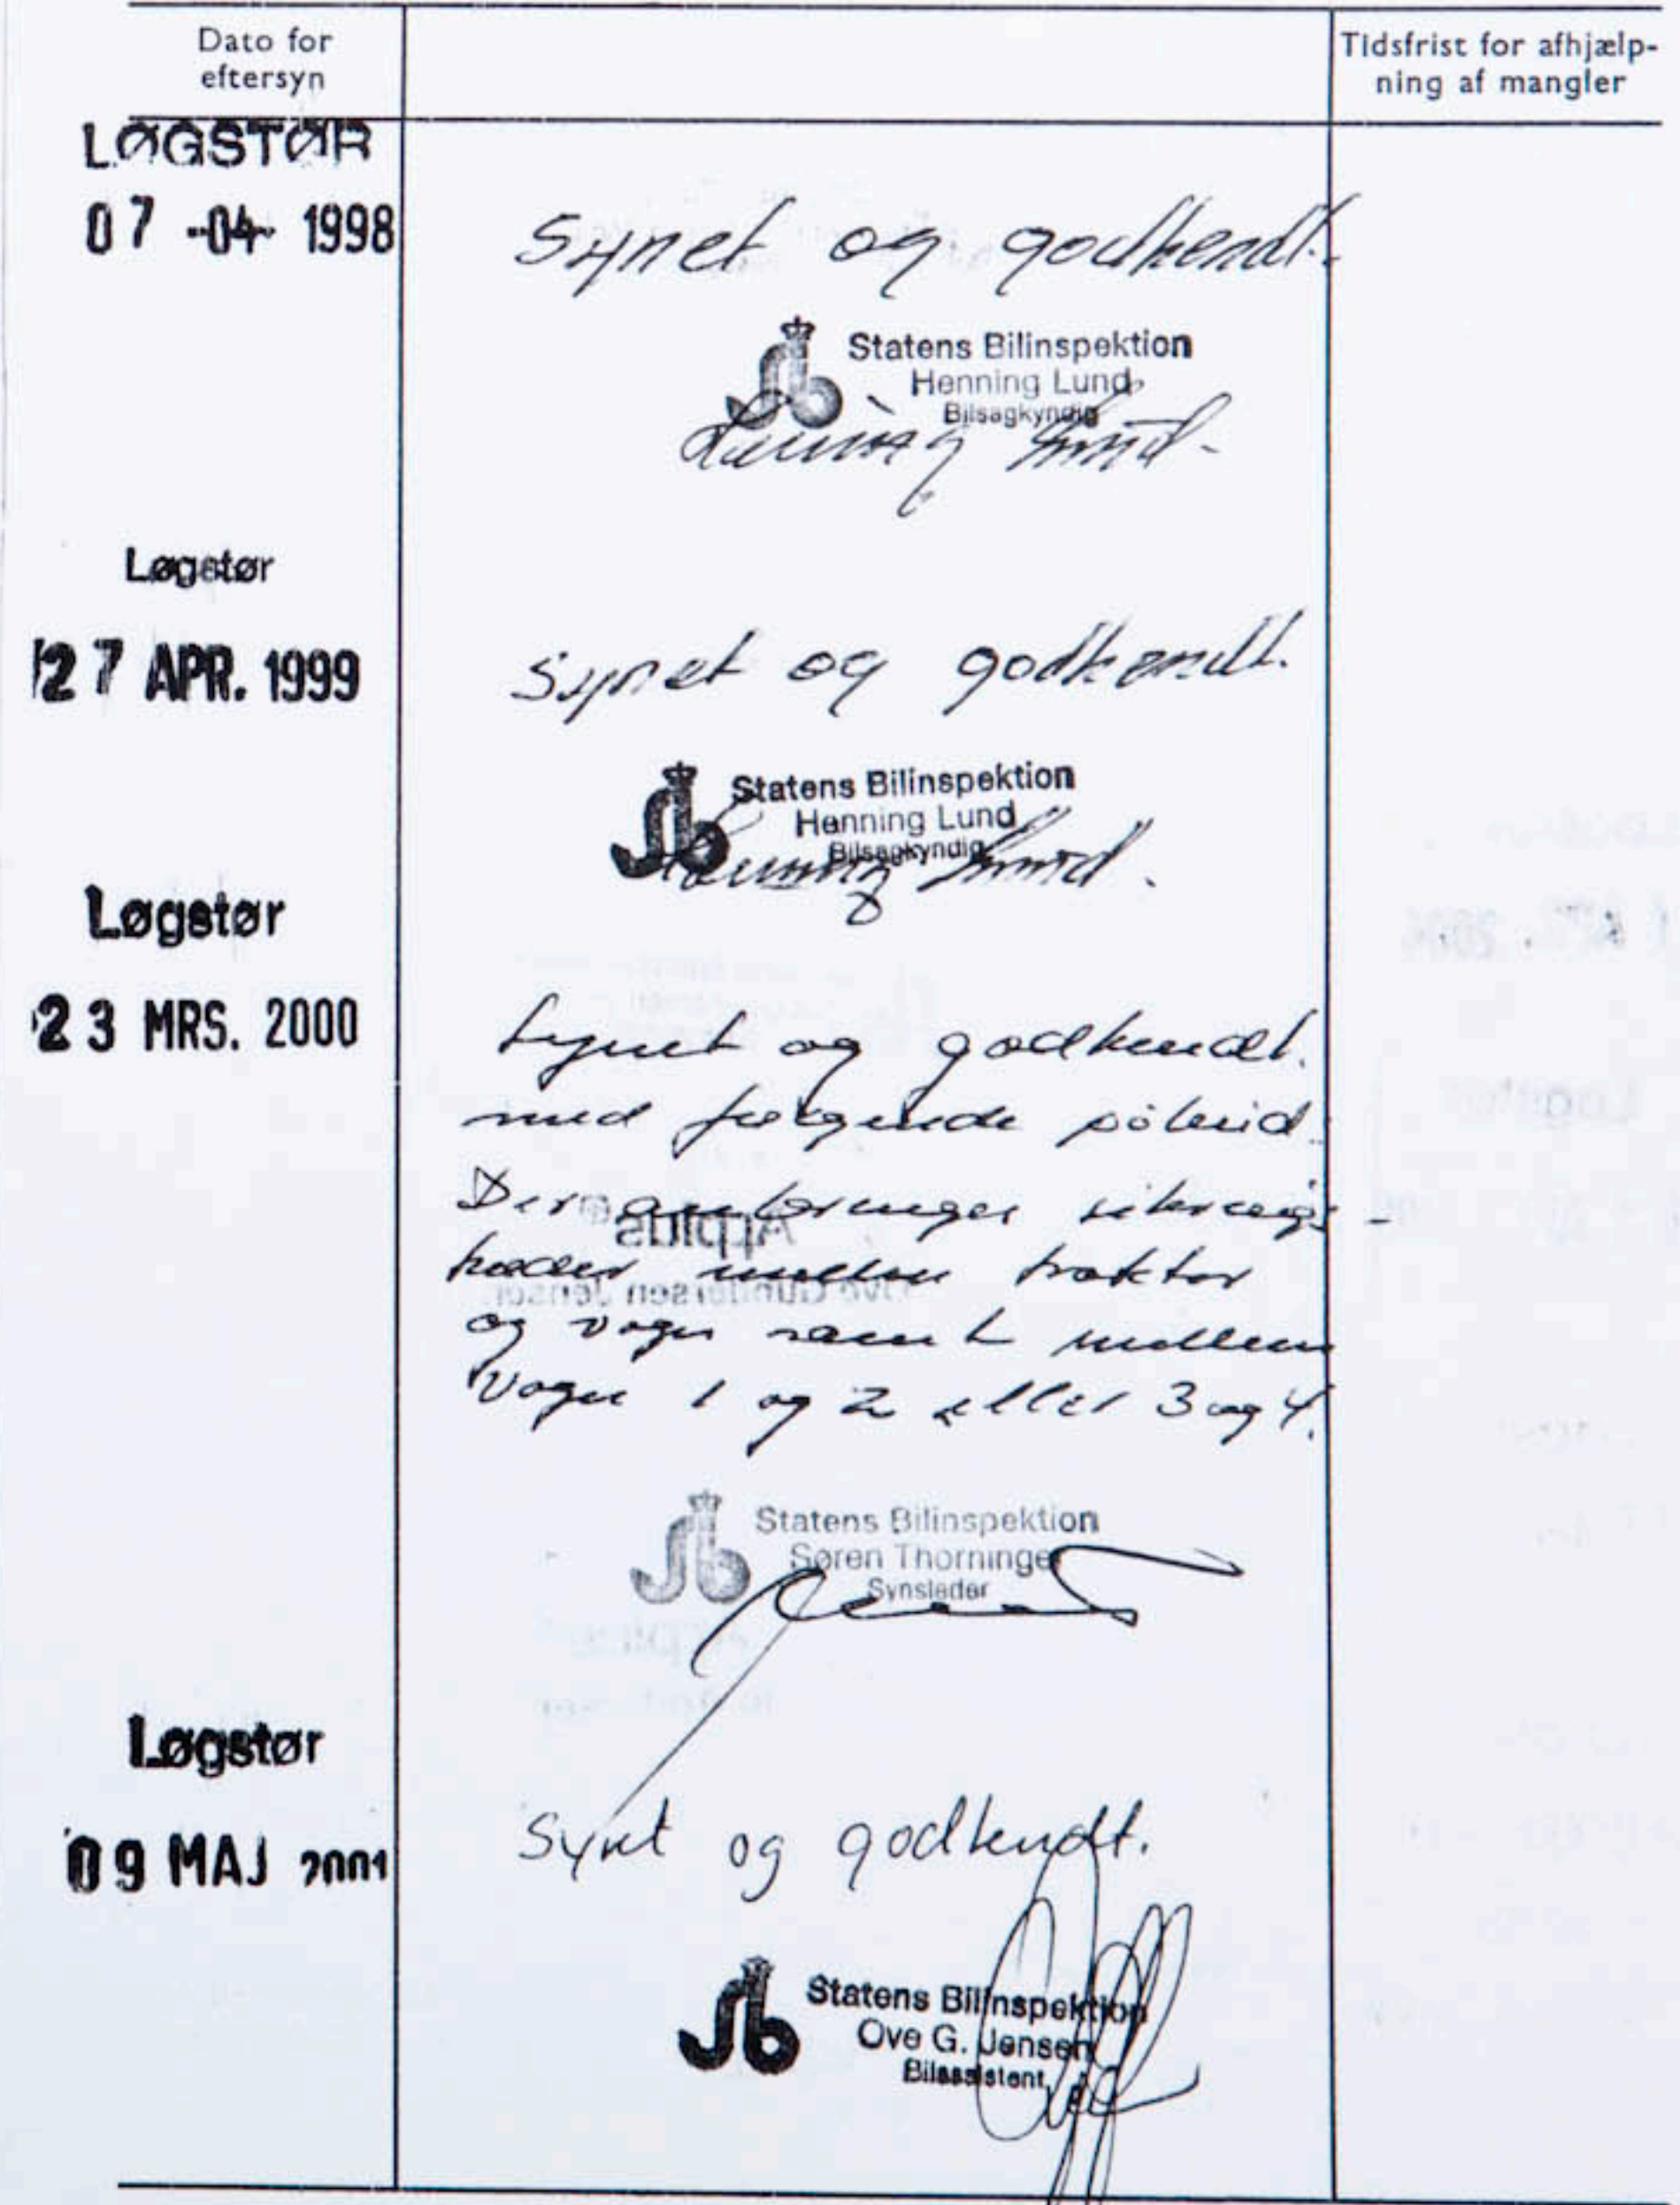 Dato for
eftersyn
Tidsfrist for afhjælp-
ning af mangler
LØGSTØR
07 -04- 1998
Synet og godkendt.
Statens Bilinspektion
Henning Lund
Bilsagkyndig
Henning Lund
Løgstør
27 APR. 1999
Synet og godkendt.
Statens Bilinspektion
Henning Lund
Bilsagkyndig
Henning Lund
Løgstør
23 MRS. 2000
Synet og godkendt.
med følgende påbud
Der anbringes sikrings-
kæder mellem traktor
og vogn samt mellem
Vogn 1 og 2 eller 3 og 4.
Statens Bilinspektion
Søren Thorninger
Synsleder
Løgstør
09 MAJ 2001
Synt og godkendt.
Statens Bilinspektion
Ove G. Jensen
Bilassistent